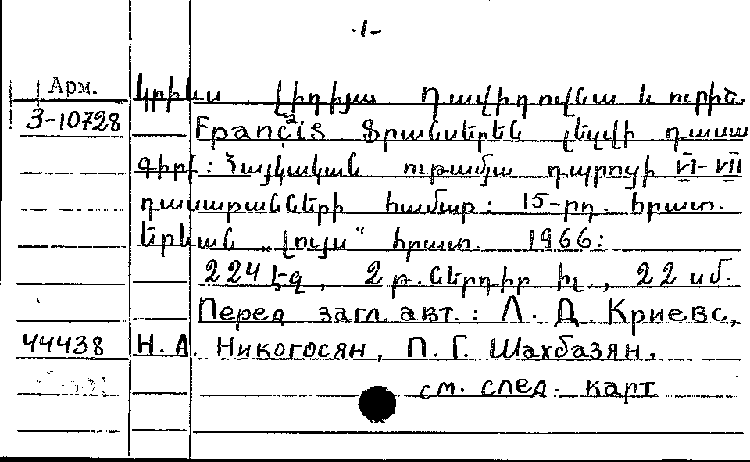 -1-
Арм. Կրիևս Լիդիյա Դավիդովնա և ուրիշ.
3-10728 Français Ֆրանսերեն լեզվի դասա
գիրք: Հայկական ութամյա դպրոցի VI-VII
դասարանների համար: 15-րդ. հրատ.
Երևան „Լույս" հրատ. 1966:
224 էջ, 2 թ. ներդիր իլ., 22 սմ.
Перед загл. авт.: Л. Д. Криевс,
44438 Н. А. Никогосян, П. Г. Шахбазян.
см. след. карт